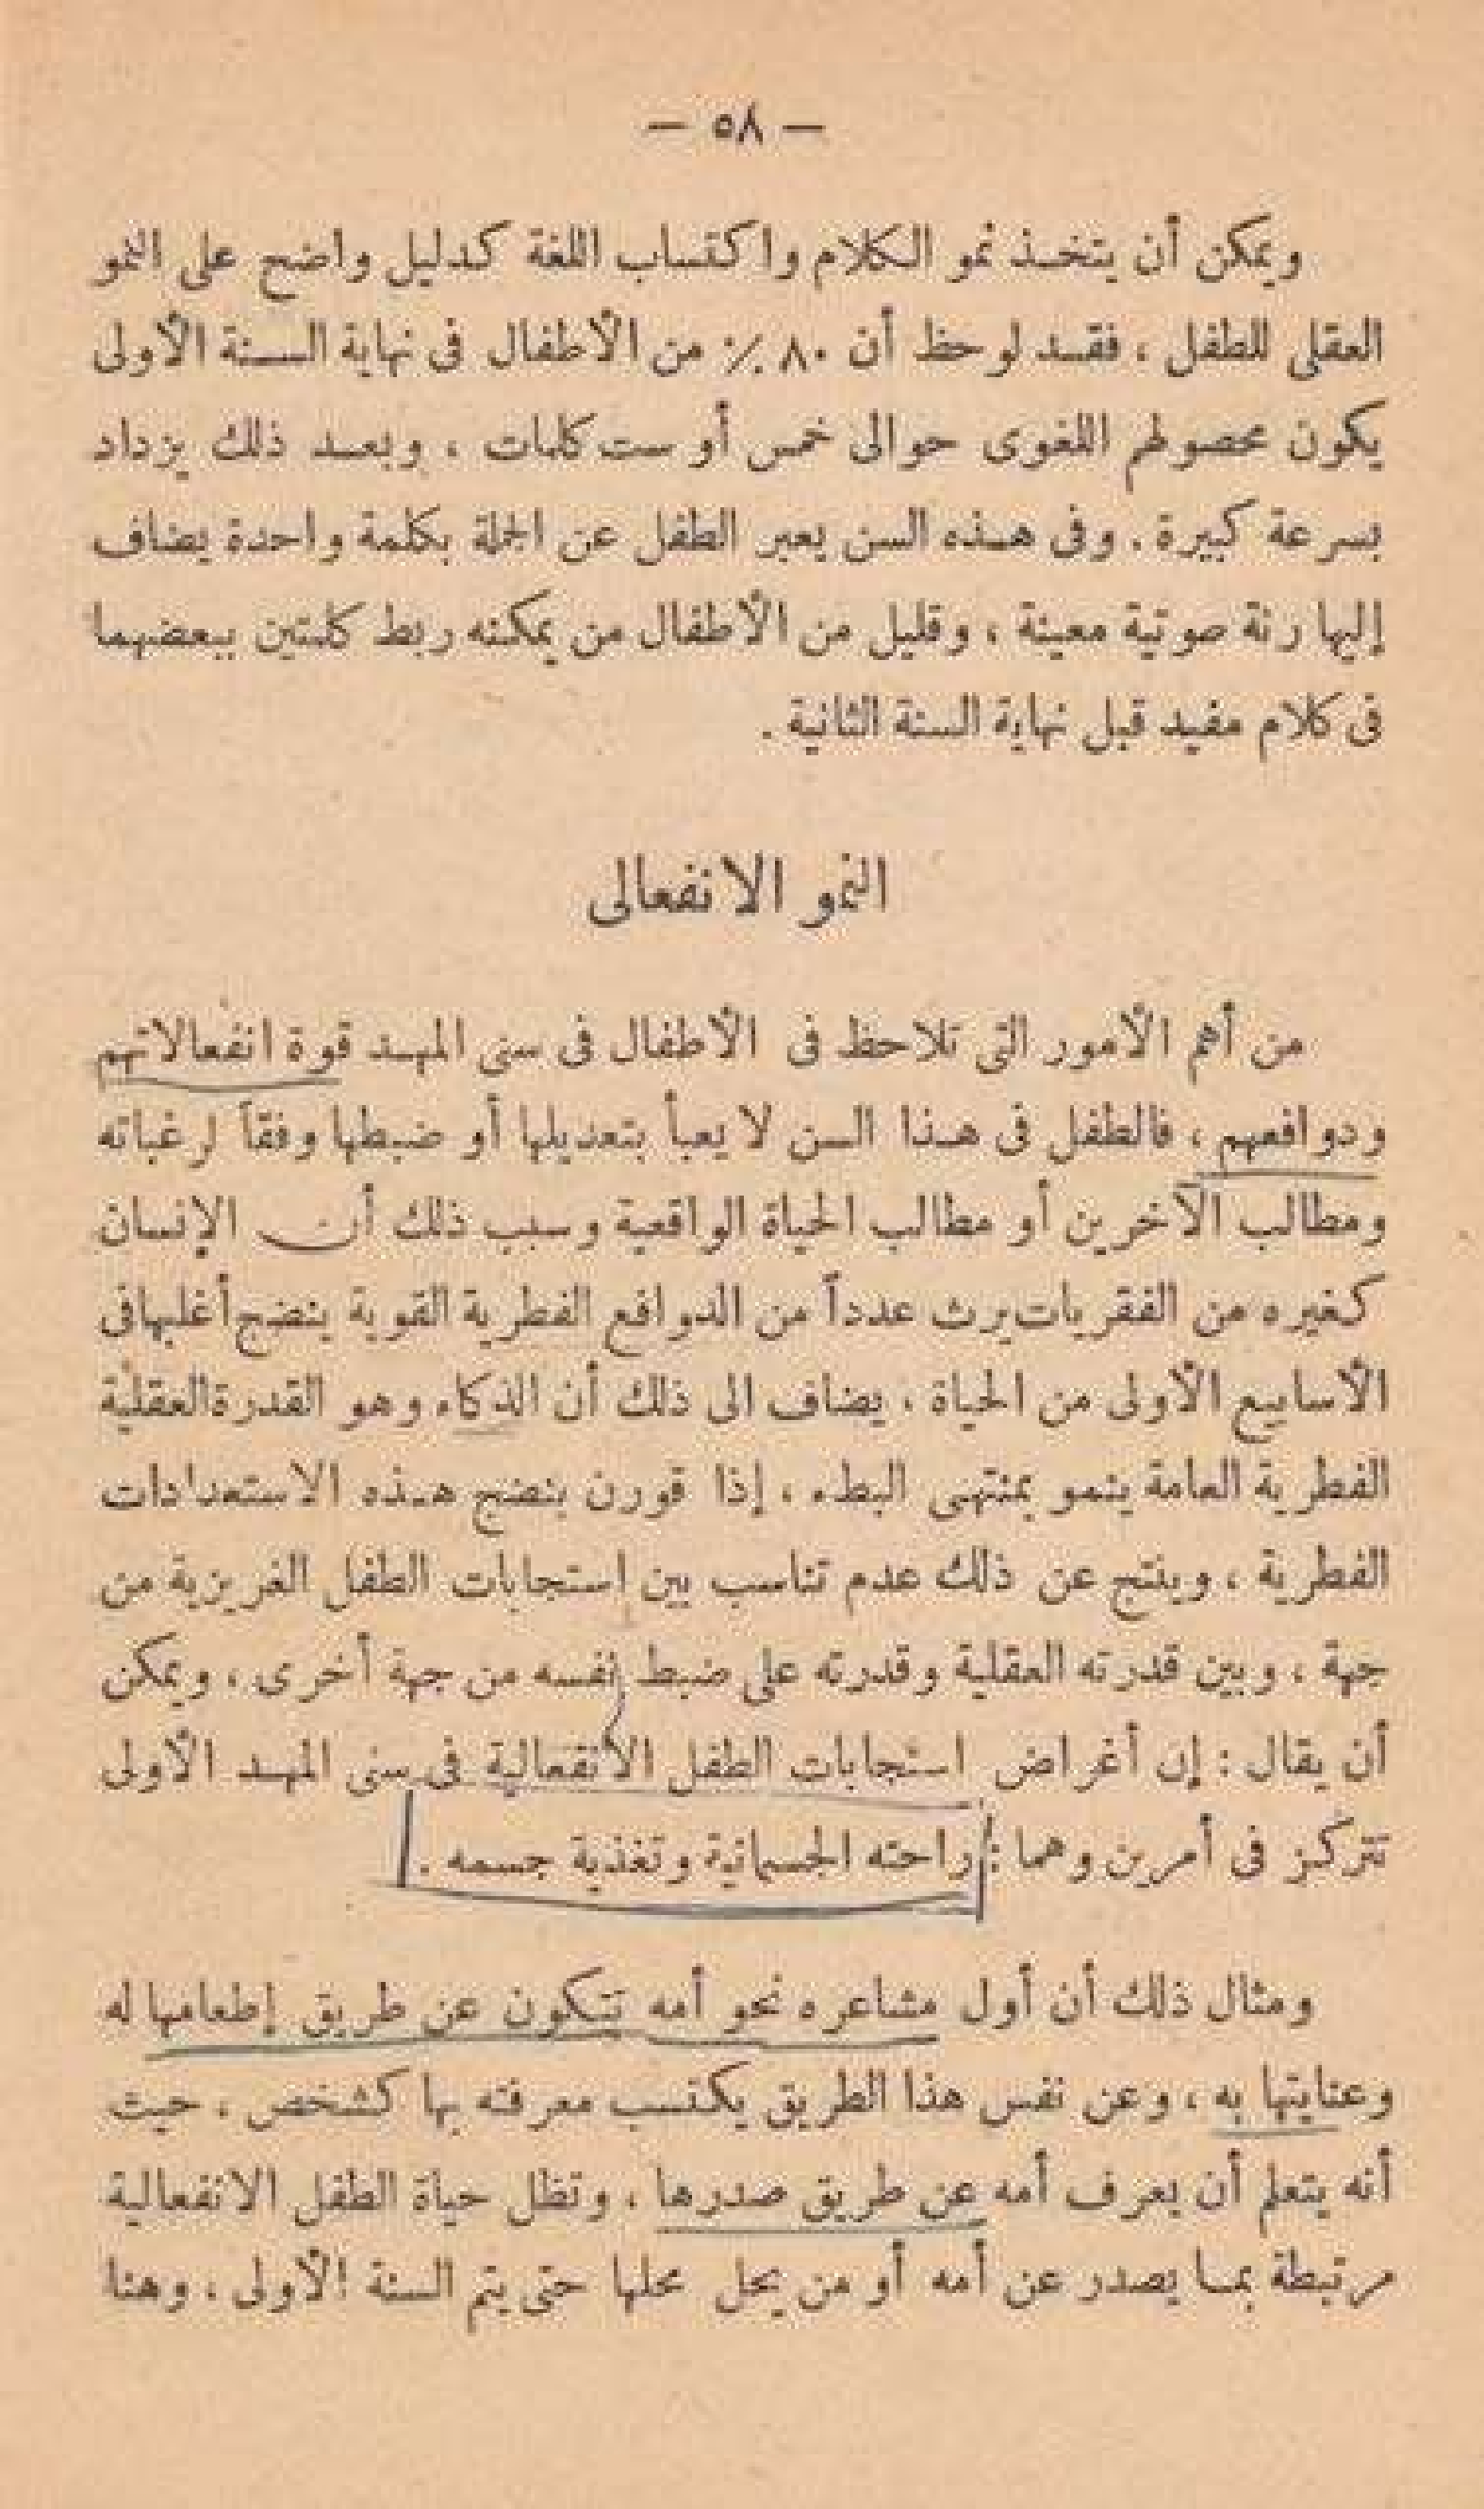 — ٥٨ —
ويمكن أن يتخذ نمو الكلام واكتساب اللغة كدليل واضح على النمو
العقلى للطفل ، فقد لوحظ أن ٨٠ ٪ من الأطفال فى نهاية السنة الأولى
يكون محصولهم اللغوى حوالى خمس أو ست كلمات ، وبعد ذلك يزداد
بسرعة كبيرة . وفى هذه السن يعبر الطفل عن الجملة بكلمة واحدة يضاف
إليها رنة صوتية معينة ، وقليل من الأطفال من يمكنه ربط كلمتين ببعضهما
فى كلام مفيد قبل نهاية السنة الثانية .
النمو الانفعالى
من أهم الأمور التى تلاحظ فى الأطفال فى سنى المهد قوة انفعالاتهم
ودوافعهم ، فالطفل فى هذا السن لا يعبأ بتعديلها أو ضبطها وفقاً لرغباته
ومطالب الآخرين أو مطالب الحياة الواقعية وسبب ذلك أن الإنسان
كغيره من الفقريات يرث عدداً من الدوافع الفطرية القوية ينضج أغلبها فى
الأسابيع الأولى من الحياة ، يضاف الى ذلك أن الذكاء وهو القدرة العقلية
الفطرية العامة ينمو بمنتهى البطء ، إذا قورن بنضج هذه الاستعدادات
الفطرية ، وينتج عن ذلك عدم تناسب بين استجابات الطفل الغريزية من
جهة ، وبين قدرته العقلية وقدرته على ضبط نفسه من جهة أخرى ، ويمكن
أن يقال : إن أغراض استجابات الطفل الانفعالية فى سنى المهد الأولى
تتركز فى أمرين وهما : راحته الجسمانية وتغذية جسمه .
ومثال ذلك أن أول مشاعره نحو أمه تتكون عن طريق إطعامها له
وعنايتها به ، وعن نفس هذا الطريق يكتسب معرفته بها كشخص ، حيث
أنه يتعلم أن يعرف أمه عن طريق صدرها ، وتظل حياة الطفل الانفعالية
مرتبطة بما يصدر عن أمه أو من يحل محلها حتى يتم السنة الأولى ، وهنا